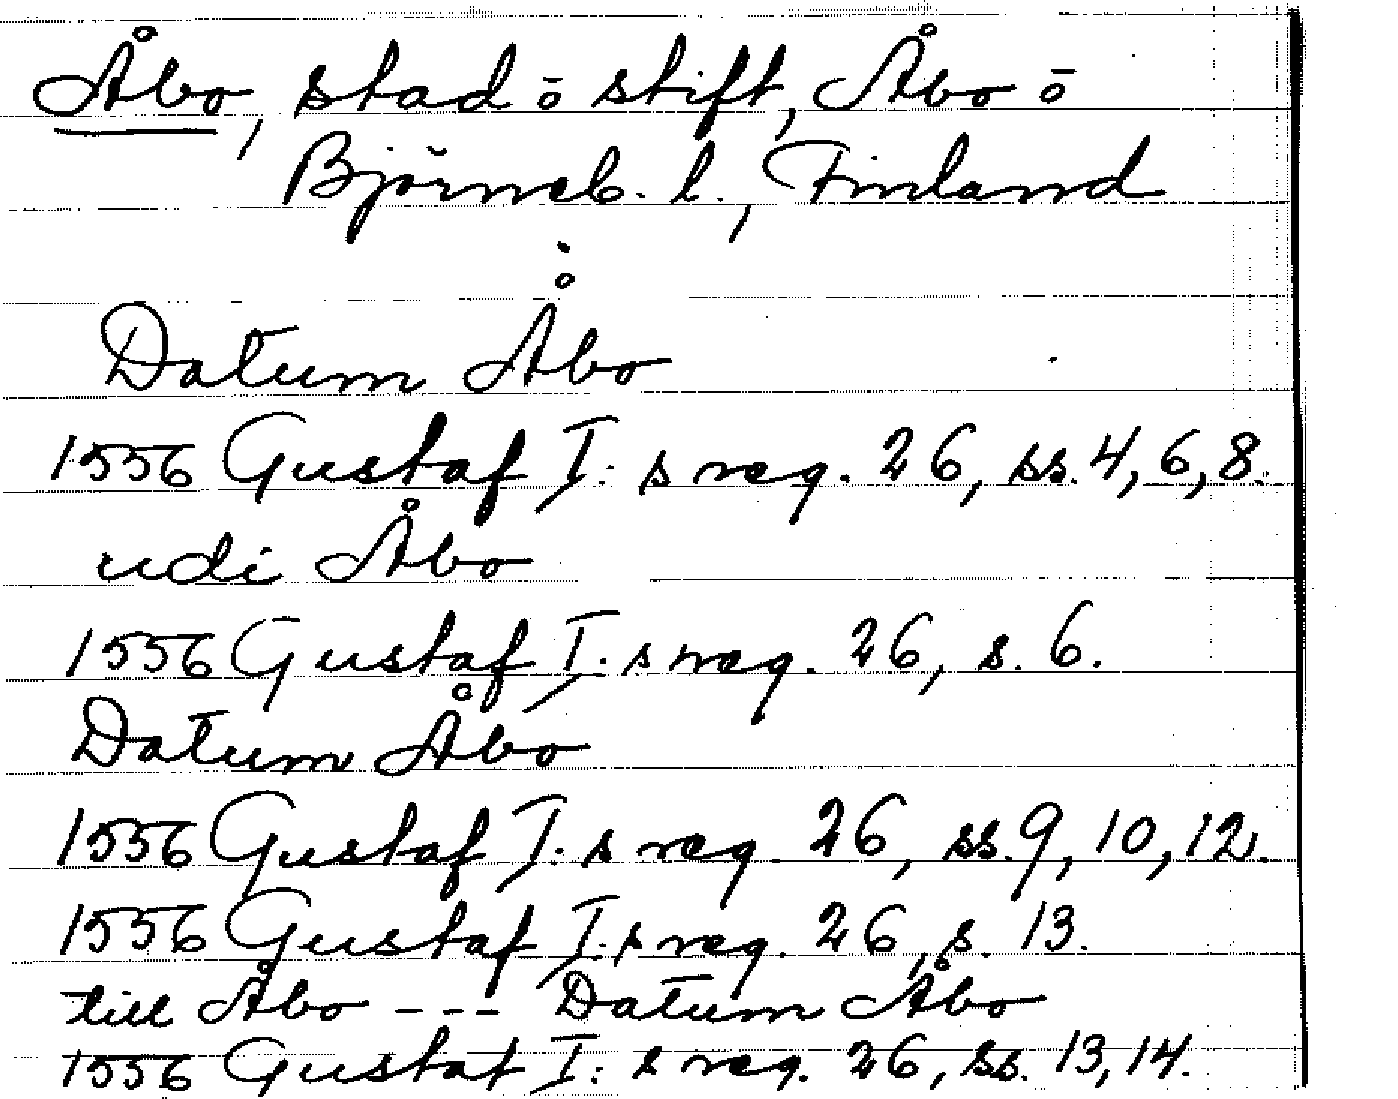 Åbo, stad ō stift, Åbo ō
Björneb. l., Finland
Datum Åbo
1556 Gustaf I: s reg. 26, ss. 4, 6, 8.
udi Åbo
1556 Gustaf I: s reg. 26, s. 6.
Datum Åbo
1556 Gustaf I: s reg. 26, ss. 9, 10, 12.
1556 Gustaf I: s reg. 26, s. 13.
till Åbo --- Datum Åbo
1556 Gustaf I: s reg. 26, ss. 13, 14.